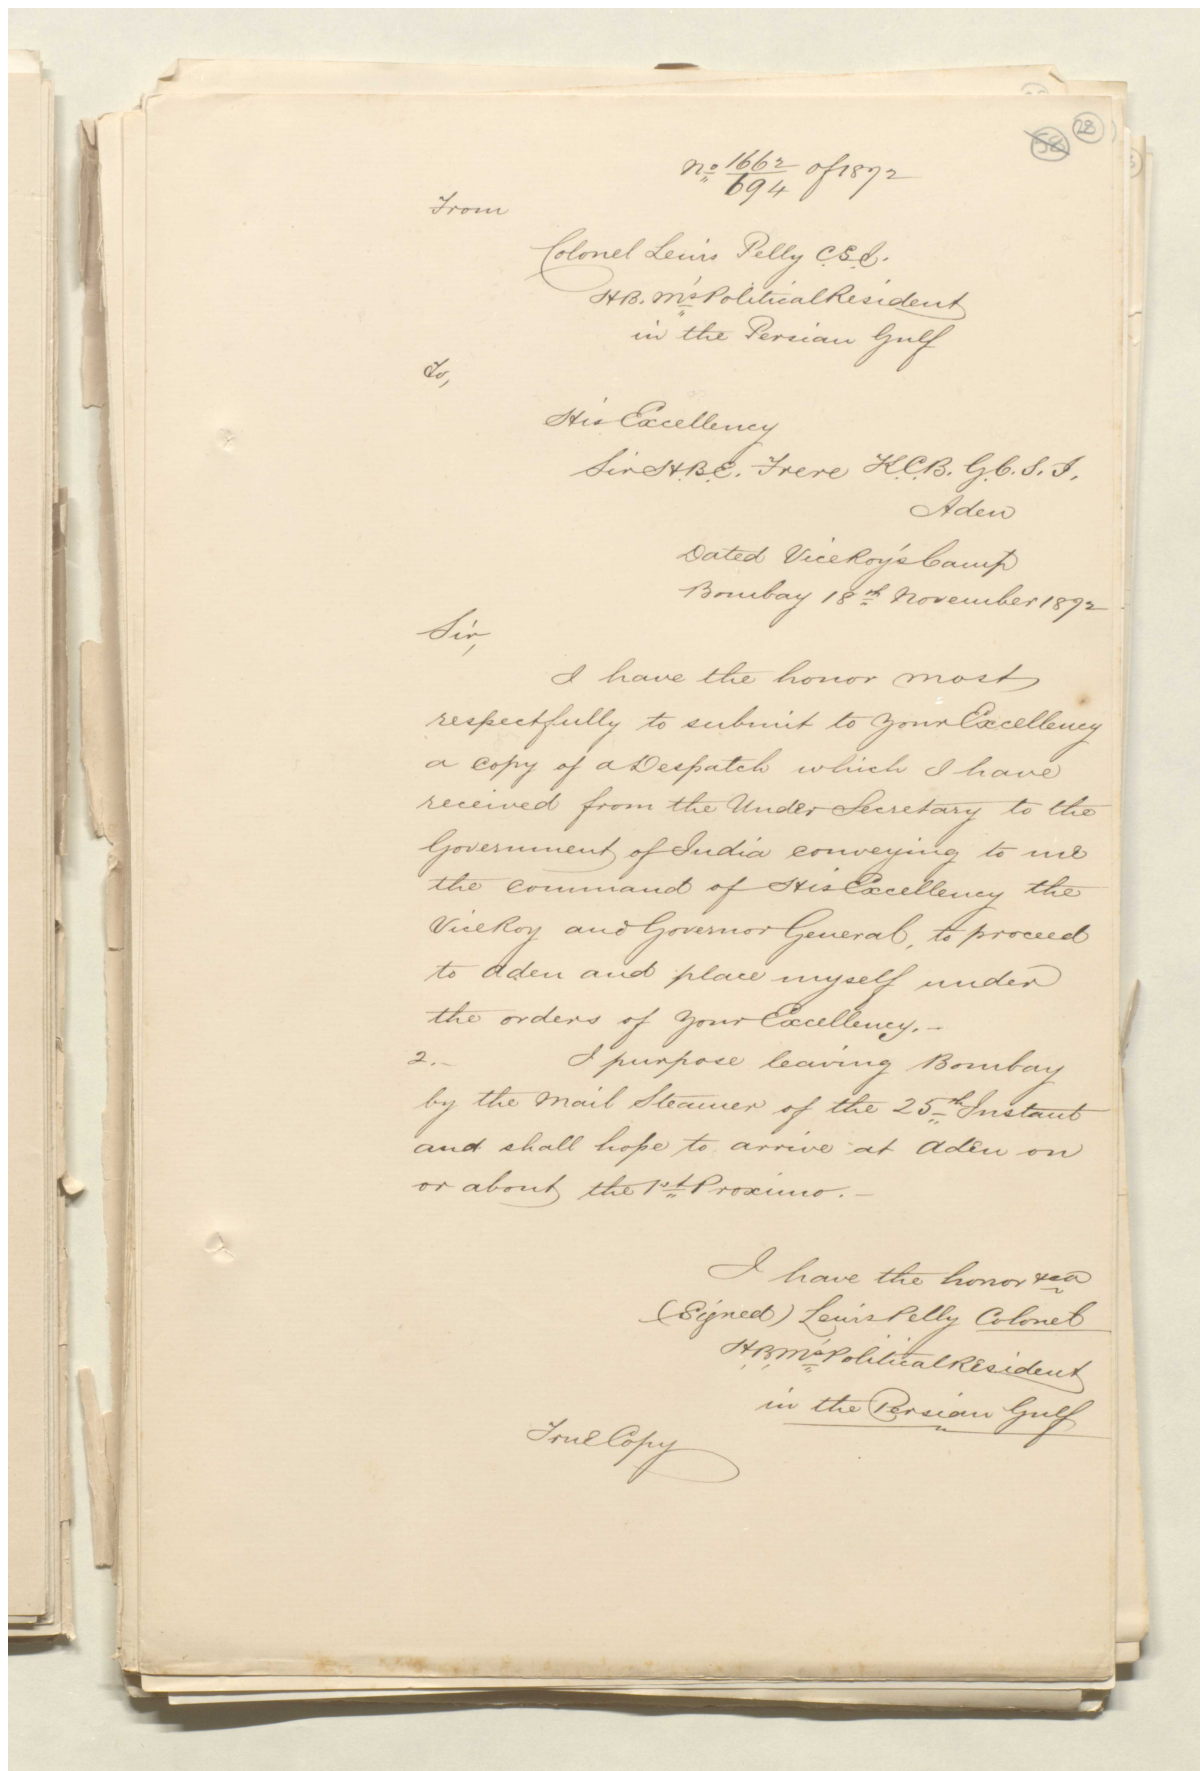 58 28
No 1662/694 of 1872
From
Colonel Lewis Pelly C.S.I.
H.B. M's Political Resident
in the Persian Gulf
To,
His Excellency
Sir H.B.E. Frere K.C.B. G.C.S.I.
Aden
Dated ViceRoy's Camp
Bombay 18th November 1872
Sir,
I have the honor most
respectfully to submit to Your Excellency
a copy of a Despatch which I have
received from the Under Secretary to the
Government of India conveying to me
the command of His Excellency the
ViceRoy and Governor General, to proceed
to Aden and place myself under
the orders of Your Excellency.-
2.- I purpose leaving Bombay
by the Mail Steamer of the 25th Instant
and shall hope to arrive at Aden on
or about the 1st Proximo.-
I have the honor &ca
(Signed) Lewis Pelly Colonel
H.B.M's Political Resident
in the Persian Gulf
True Copy